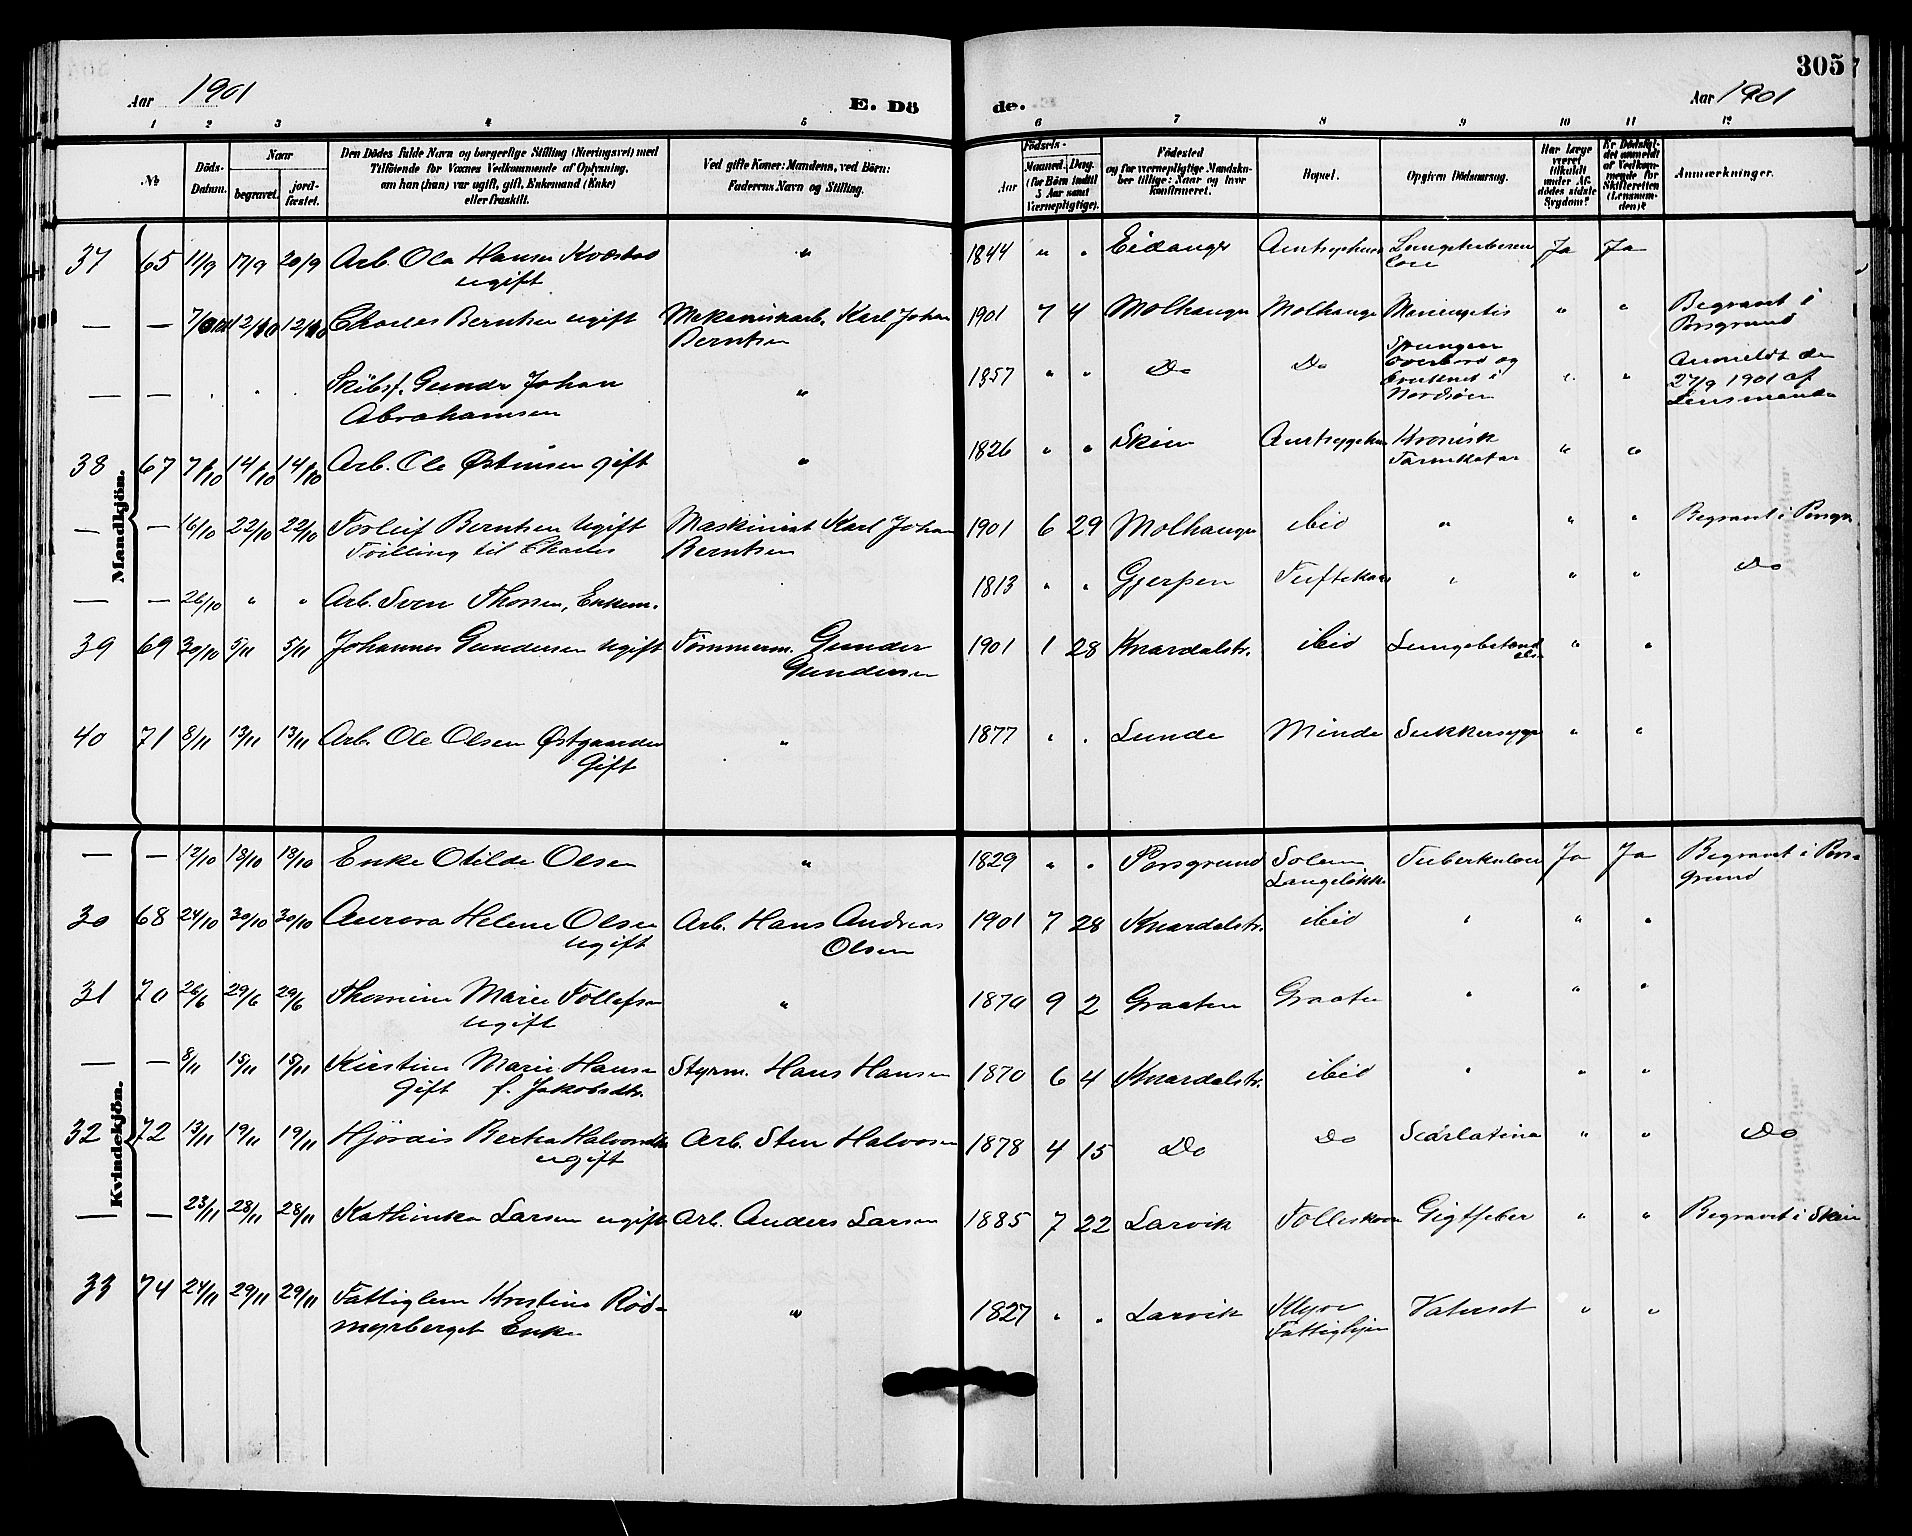 305
Aar 1901
E. Dö
de.
Aar 1901
1 2 3 4 5 6 7 8 9 10 11 12
No
Döds-
Datum.
Naar
begravet.
jord-
fæstet.
Den Dödes fulde Navn og borgerlige Stilling (Næringsvei) med
Tilföiende for Voxnes Vedkommende af Oplysning,
om han (hun) var ugift, gift, Enkemand (Enke)
eller fraskilt.
Ved gifte Koner: Mandens, ved Börn:
Faderens Navn og Stilling.
Födsels-
Aar
Maaned. Dag.
(for Börn indtil
5 Aar samt
Værnepligtige).
Födested
og for værnepligtige Mandska-
ber tillige: Naar og hvor
konfirmeret.
Bopæl.
Opgiven Dödsaarsag.
Har Læge
været
tilkaldt
under Af-
dödes sidste
Sygdom?
Er Dödsfal-
det anmeldt
af Vedkom-
mende for
Skifteretten
(Lensman-
den)?
Anmærkninger.
Mandkjön.
37 65 11/9 17/9 20/9 Arb. Ole Hansen Kvæstad " 1844 " " Eidanger Amtssygehus Ja Ja
ugift
— — 12/10 12/10 Charles Berntsen ugift Mekaniskarb. Karl Johan 1901 7 4 Molhaugen Molhaugen Meningitis " " Begravet i
Berntsen Porsgrund
— — Skibsf. Gunder Johan " 1857 " " Do Do Sprungen
overbord og
druknet i
Nordsöen " " Anmeldt den
27/9 1901 af
Lensmanden
Abrahamsen
38 67 7/10 14/10 14/10 Arb. Ole Østensen gift " 1826 " " Skien Amtssygehus Kronisk
Tarmkatar " "
— — 16/10 22/10 22/10 Torleif Berntsen ugift Maskinist Karl Johan 1901 6 29 Molhaugen ibid " " " Begravet i Porsgr.
Tvilling til Charles Berntsen
— — 26/10 " " Arb. Sven Thorsen, Enkem. 1813 " " Gjerpen Tuftekaas " " " Do
39 69 30/10 5/11 5/11 Johannes Gundersen ugift Tömmerm. Gunder 1901 1 28 Knardalstr. ibid Lungebetænd
else " "
Gundersen
40 71 8/11 13/11 13/11 Arb. Ole Olsen Østgaarden " 1877 " " Lunde Minde Sukkersyge " "
Gift
Kvindekjön.
— — 12/10 18/10 18/10 Enke Otilde Olsen " 1829 " " Porsgrund Solum
Langeløkke Tuberkulose Ja Ja Begravet i Pors-
grund
30 68 24/10 30/10 30/10 Aurora Helene Olsen Arb. Hans Andreas 1901 7 28 Knardalstr. ibid " " "
ugift Olsen
31 70 26/6 29/6 29/6 Thomine Marie Tollefsen " 1870 9 2 Graaten Graaten " " "
ugift
— — 8/11 15/11 15/11 Kirstine Marie Hansen Styrm. Hans Hansen 1870 6 4 Knardalstr. ibid " " "
Gift f. Jakobsdtr.
32 72 13/11 19/11 19/11 Hjördis Berta Halvorsdtr. Arb. Sten Halvorsen 1878 4 15 Do Do Scarlatina " " Do
ugift
— — 23/11 28/11 28/11 Kathinka Larsen ugift Arb. Anders Larsen 1885 7 22 Larvik Gigtfeber " " Begravet i Skien
33 74 24/11 29/11 29/11 Fattiglem Kristine Röd- " 1827 " " Larvik Klyve
Fattighjem Vatersot " "
myrberget Enke